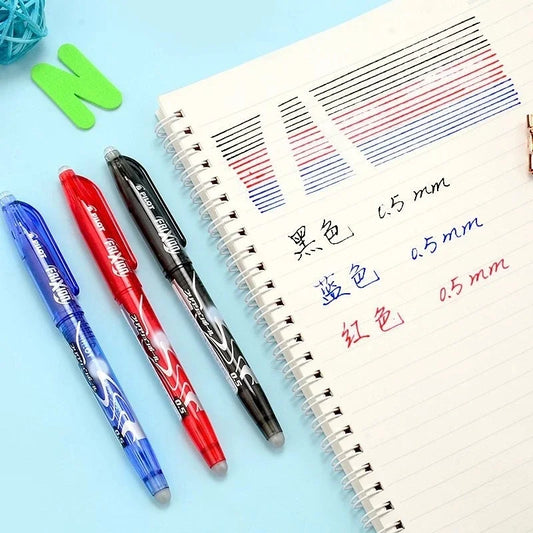 N
黑色 0.5 mm
蓝色 0.5 mm
红色 0.5 mm
PILOT
FRIXION
PILOT
FRIXION
0.5
PILOT
FRIXION
0.5